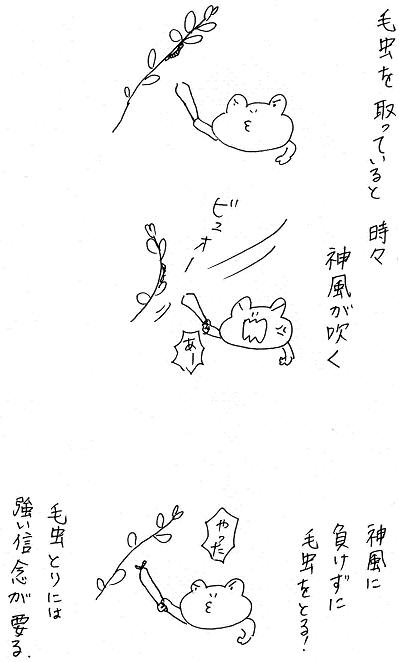 毛虫を取っていると 時々
神風が吹く
ビュオー
あー
神風に
負けずに
毛虫をとる!
やった
毛虫とりには
強い信念が要る.